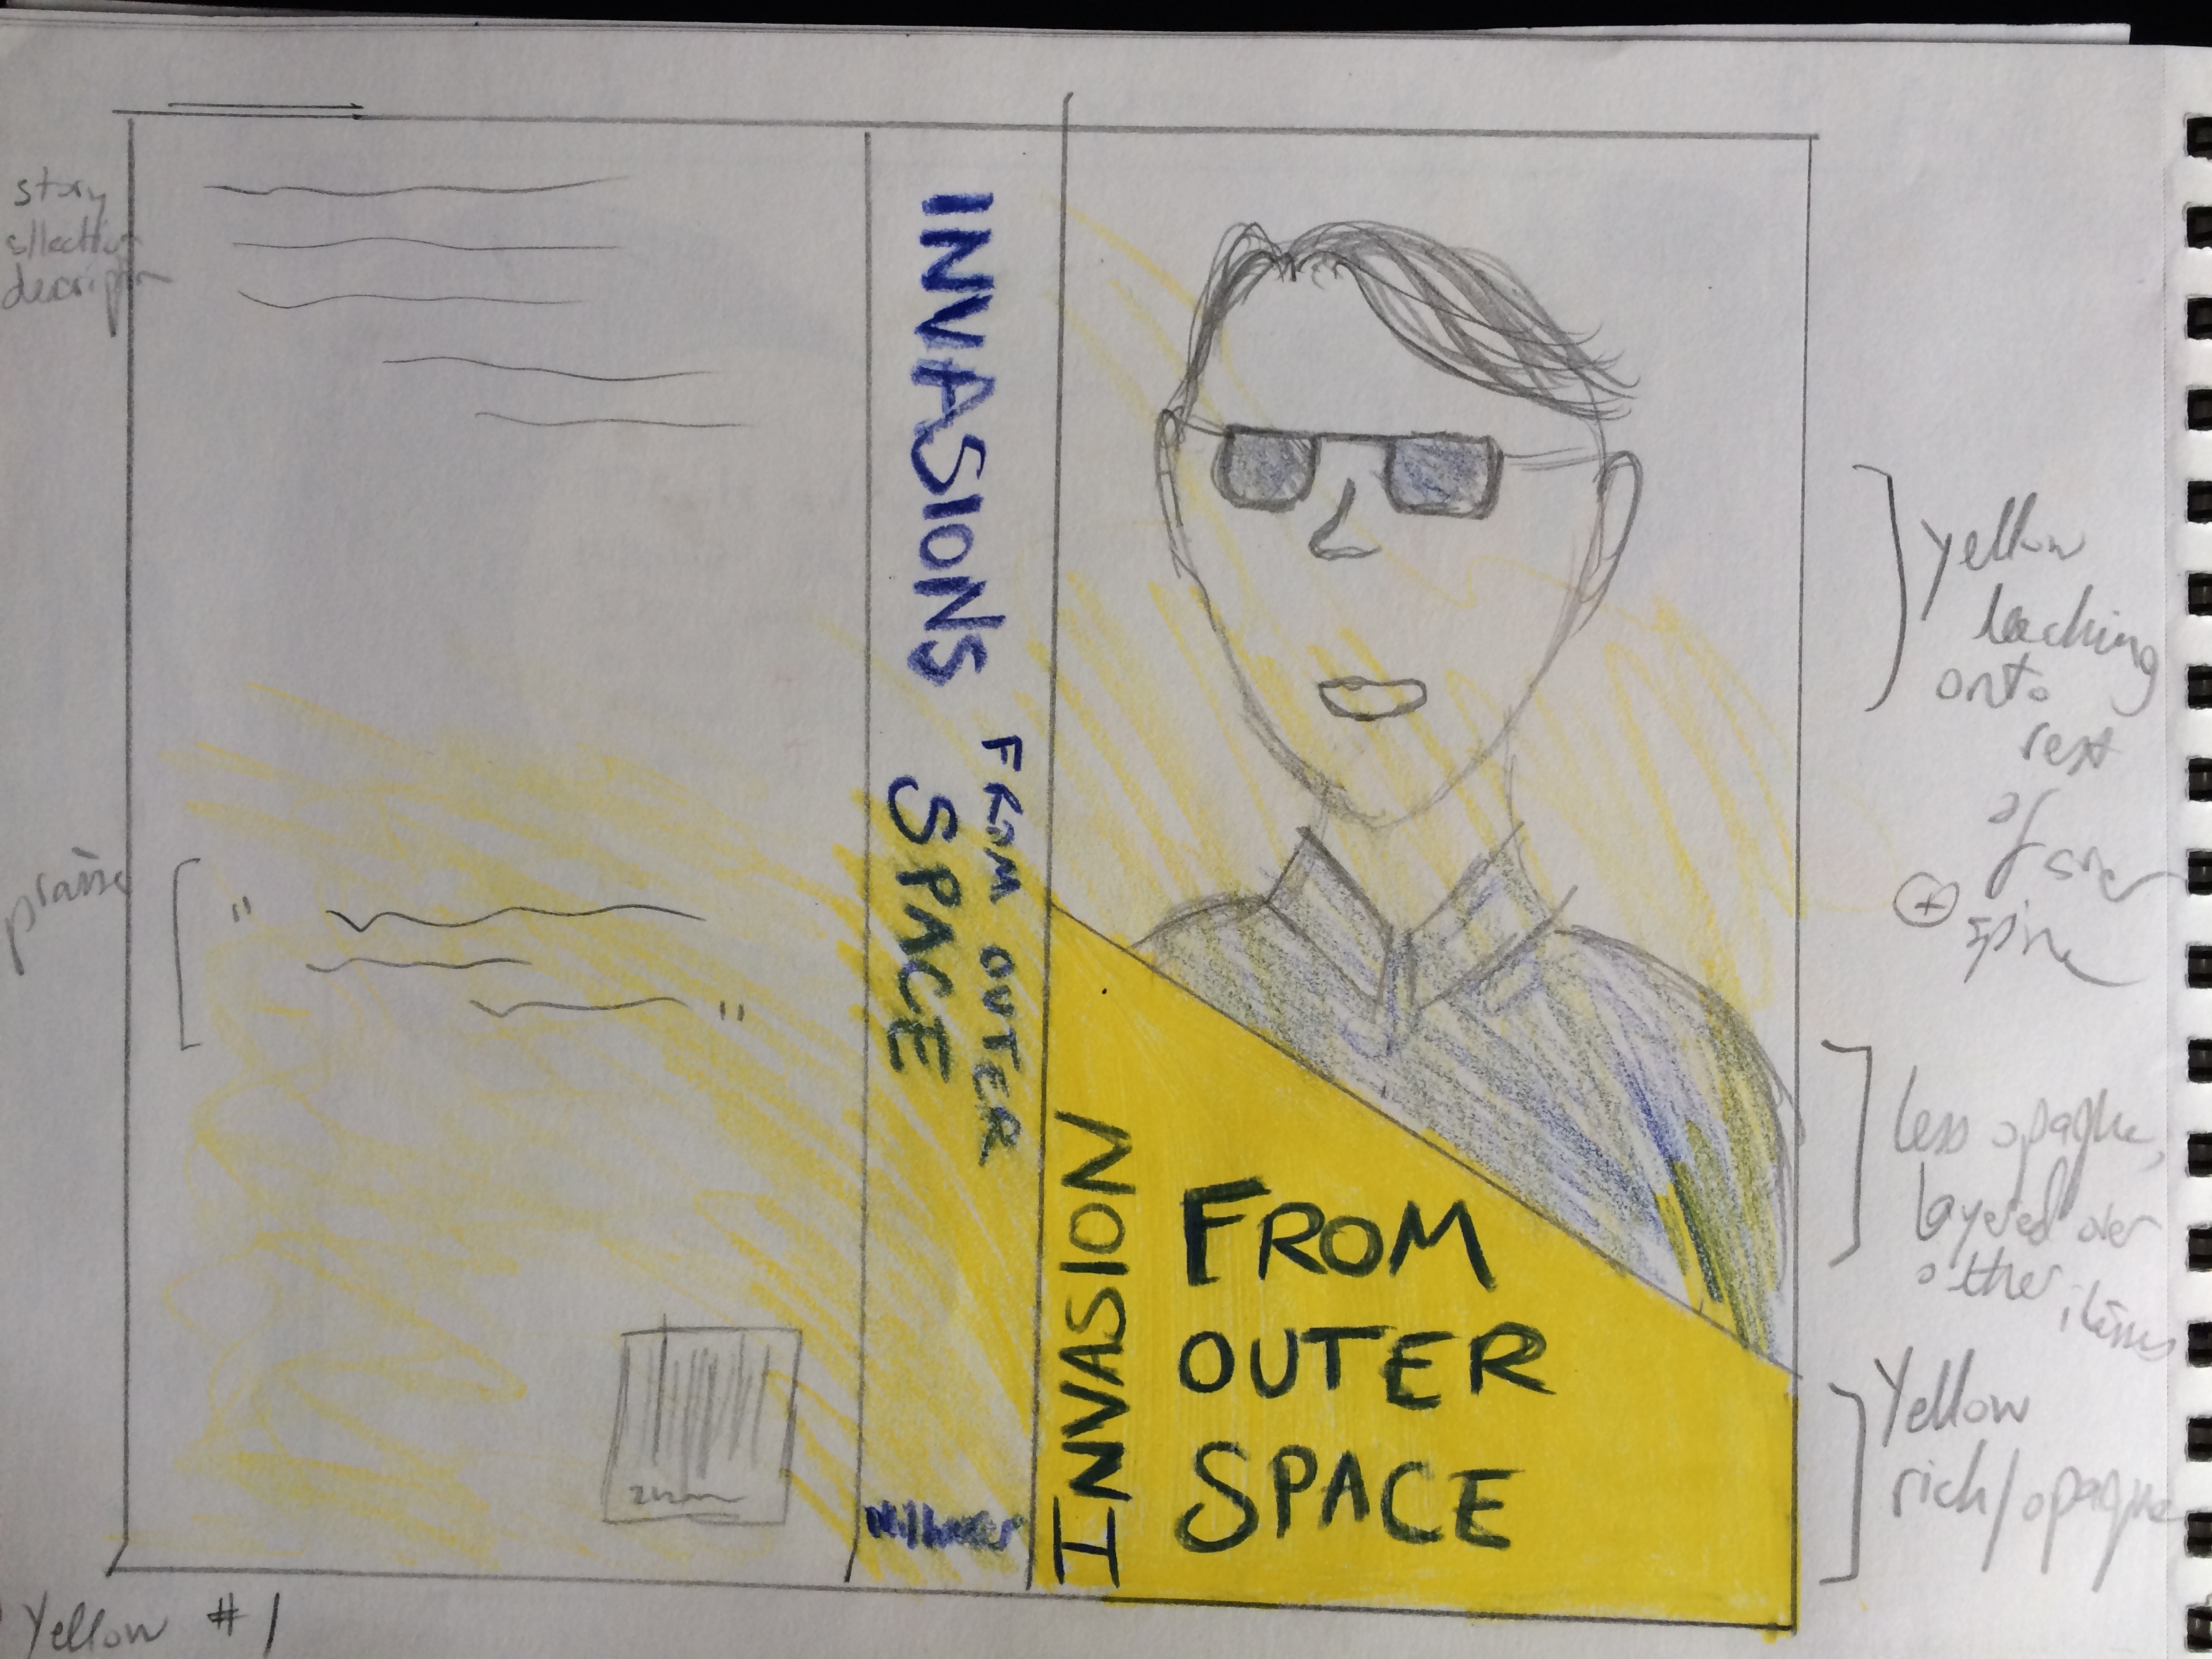 story
collection
INVASIONS
FROM OUTER
SPACE
INVASION
FROM
OUTER
SPACE
praise
" "
Yellow
leaching
onto
rest
of cover
+ spine
less opaque,
layered over
other items
Yellow
rich/opaque
Yellow #1